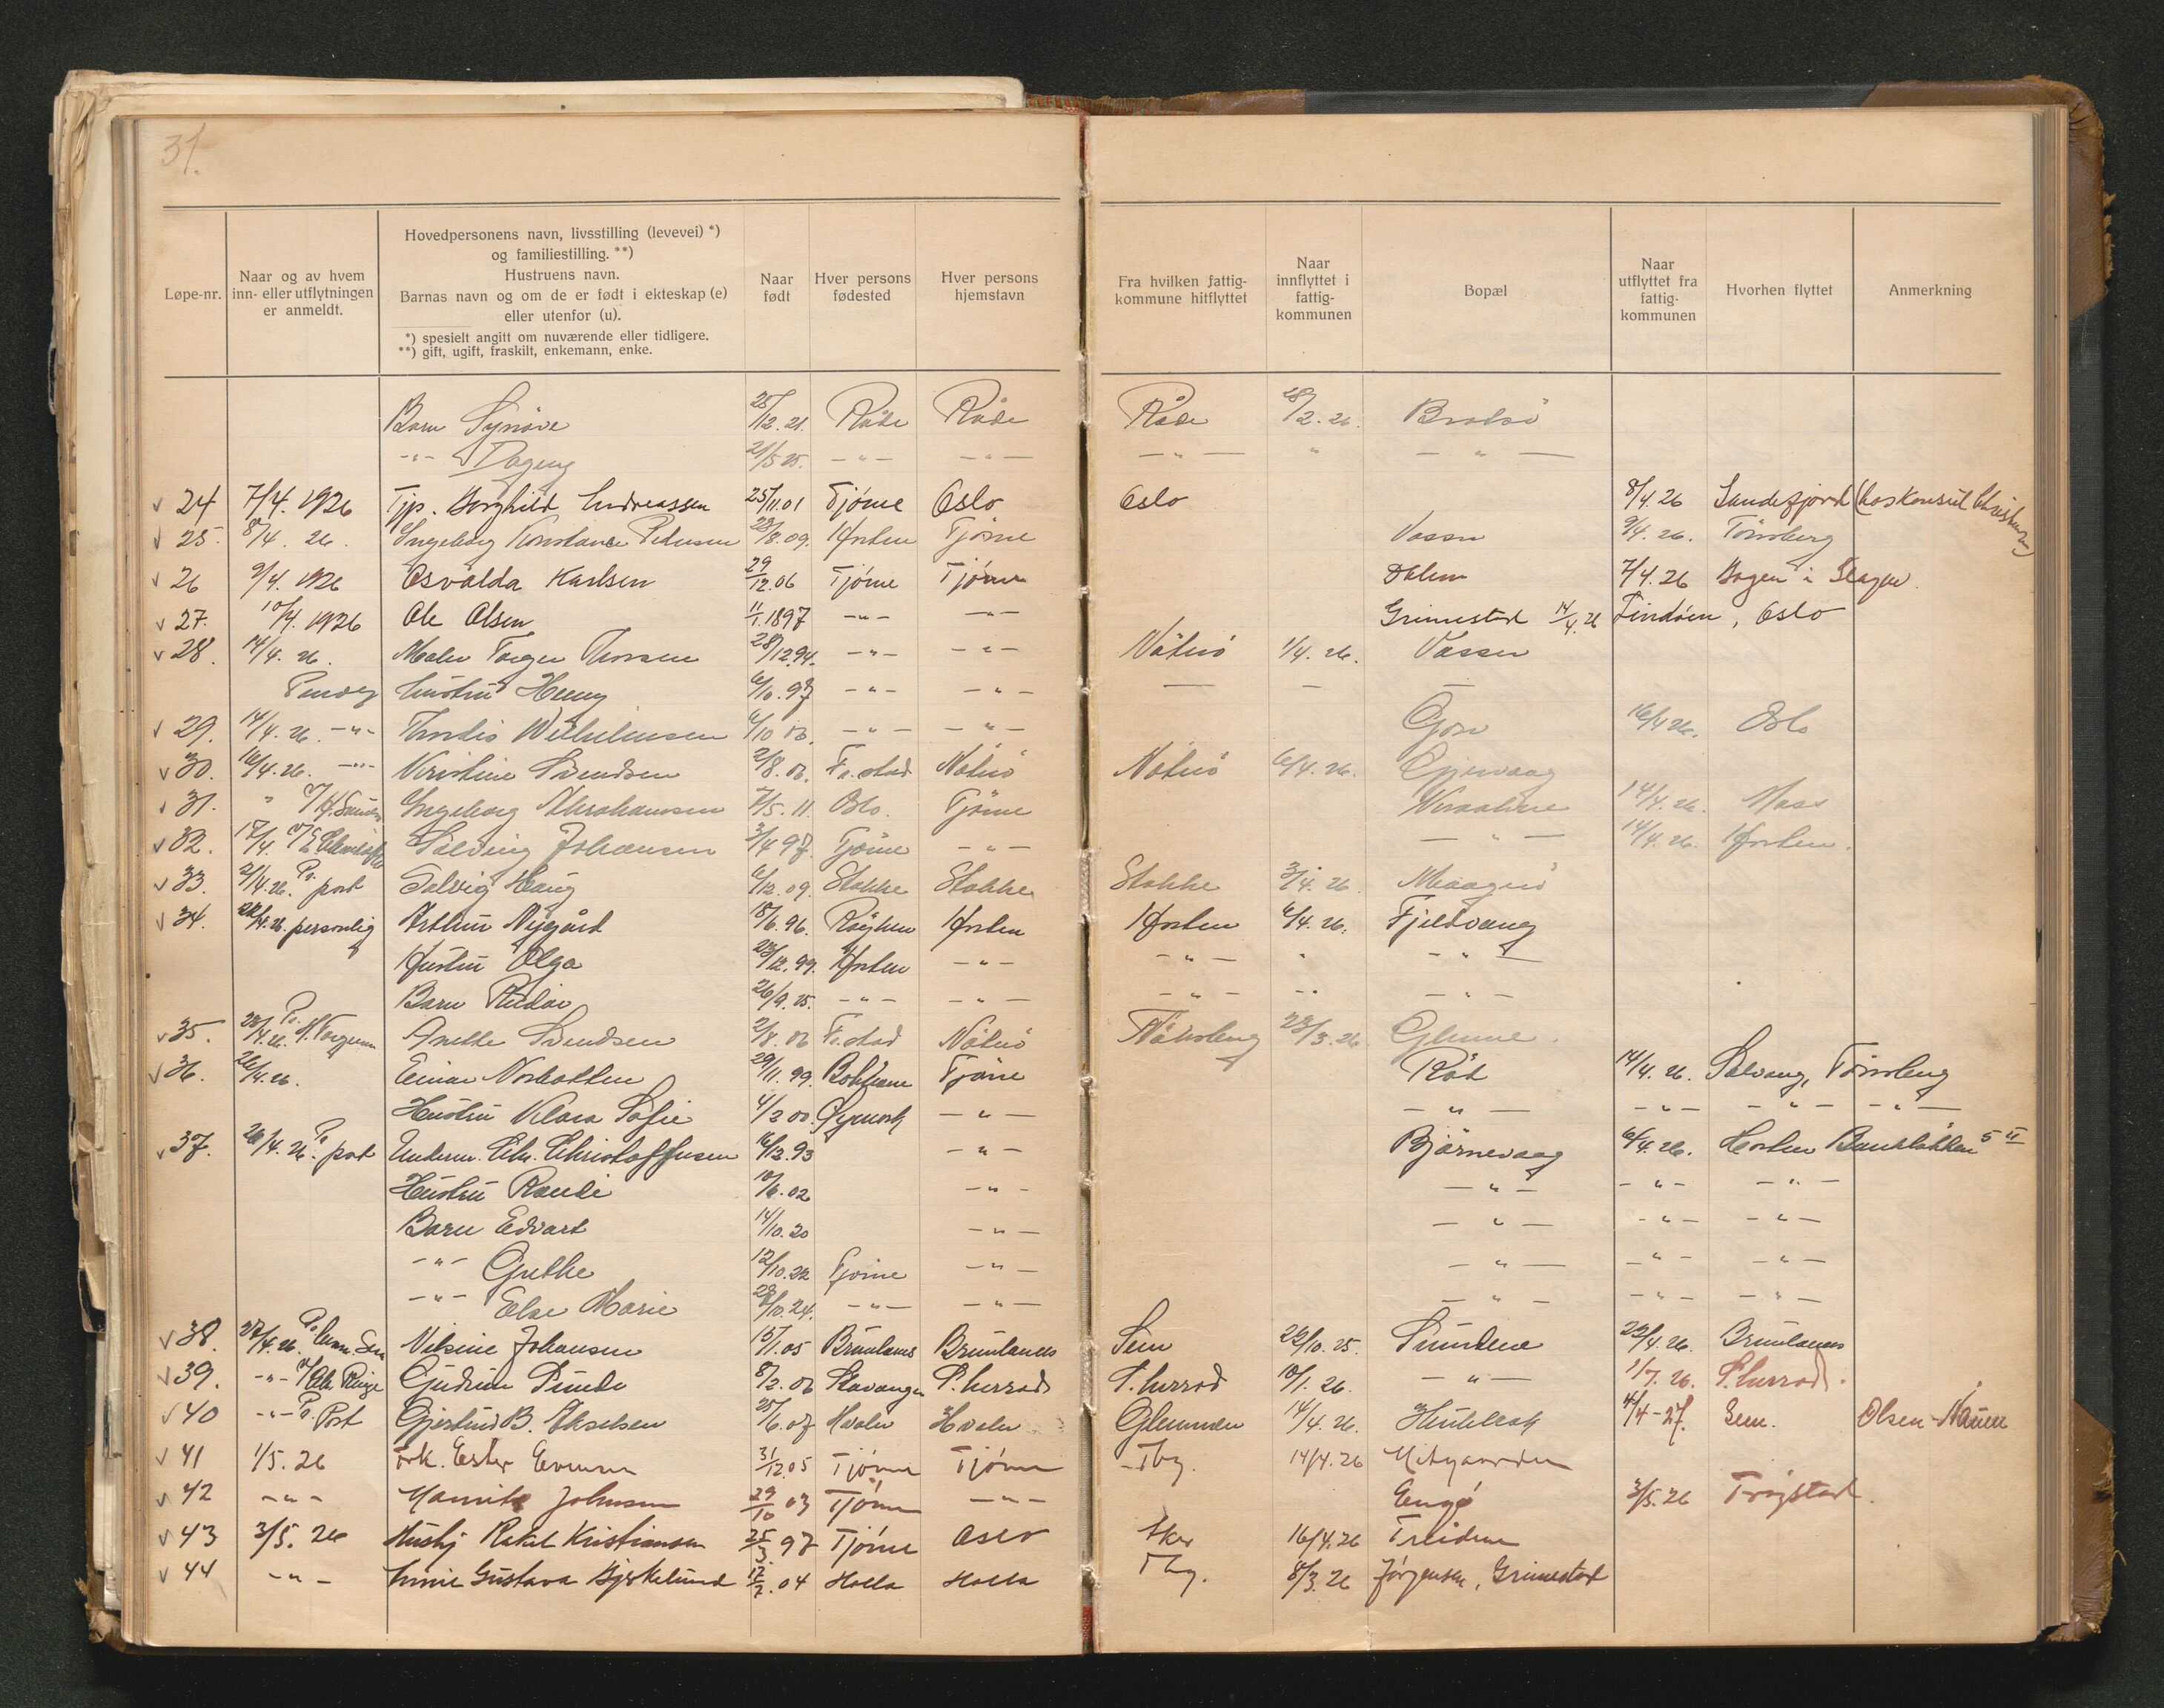 31.
Løpe-nr.
Naar og av hvem
inn- eller utflytningen
er anmeldt.
Hovedpersonens navn, livsstilling (levevei) *)
og familiestilling. **)
Hustruens navn.
Barnas navn og om de er født i ekteskap (e)
eller utenfor (u).
*) spesielt angitt om nuværende eller tidligere.
**) gift, ugift, fraskilt, enkemann, enke.
Naar
født
Hver persons
fødested
Hver persons
hjemstavn
Fra hvilken fattig-
kommune hitflyttet
Naar
innflyttet i
fattig-
kommunen
Bopæl
Naar
utflyttet fra
fattig-
kommunen
Hvorhen flyttet
Anmerkning
Barn Synøve 25/12.21. Råde Råde Råde 28/2.26. Brøtsö
-"- Dagny 21/5 25. -"- -"- -"- " -"-
24 7/4.1926 Tjp. Borghild Andreassen 25/11.01 Tjøme Oslo Oslo 8/4.26 Sandefjord (hos Konsul
25. 8/4. 26. Ingeborg Konstance Petersen 28/8.09. Horten Tjöme Vassø 9/4.26. Tönsberg
26 9/4.1926 Osvalda Karlsen 29/12.06 Tjøme Tjøme 7/4.26 Bogen i Slagen.
27. 10/4.1926 Ole Olsen 11/1.1897 -"- -"- Grimestad 14/4.26 Lindøen, Oslo
28. 14/4. 26. Maler Torger Thorsen 28/12.94. -"- -"- Nötterö 1/4.26. Vassø
Hustru Henny 6/10.97 -"- -"- — — —
29. 14/4.26. -"- Thordis Wilhelmsen 6/10 06. -"- -"- 16/4 26. Oslo
30. 16/4.26. -"- Kristine Svendsen 2/8.06. Fr.stad Nötterö Nötterö 6/4.26.
31. " Ingeborg Abrahamsen 7/5.11. Oslo. Tjöme 14/4.26. Moss
32. 17/4. Solveig Johansen 3/4 97 Tjöme -"- -"- 14/4.26. Horten.
33. 21/4.26. Pr. post Solveig Haug 6/12.09. Stokke Stokke Stokke 3/4.26. Maagerö
34. 22/4.26. personlig Arthur Nygård 18/6.96. Röyken Horten Horten 6/4.26. Fjeldvang
Hustru Olga 23/12.99. Horten -"- -"- " -"-
Barn Reidar 26/9.25. -"- -"- -"- -" -"-
35. 23/4.26. Pr. Anette Svendsen 2/8.06 Fr.stad Nötterö 23/3.26
36. 26/4.26. Einar Norbotten 29/11.99. Tjöme Röd 14/4.26. Solvang, Tönsberg
Hustru Klara Sofie 4/2 00. -"- -"- -"- -"- -"-
37. 26/4.26. Pr. post Underm. Chr. Christoffersen 16/12.93 -"- Bjørnevaag 6/4.26. Horten Bankløkken 5 II
Hustru Randi 10/6.02 -"- -"- -"- -"-
Barn Edvart 14/10.20 -"- -"- -"- -"-
-"- Grethe 12/10.22 Tjöme -"- -"- -"- -"-
-"- Else Marie 28/10.24. -"- -"- -"- -"- -"-
38. 27/4.26. Nilsine Johansen 15/1.05 Brunlanes Brunlanes Sem 22/10.25. Sundene 22/4.26. Brunlanes
39. -"- Gudrun Sunde 8/2.06 Stavanger S.herred S.herred 10/1.26. -"- 1/7.26. S.herred.
40 -"- Pr. Post Gjertrud B. Akselsen 25/6.07 Hvaler Hvaler 14/4.26. 4/4-27. Sem. Olsen-Nauen
41 1/5.26 Frk. Ester Evensen 31/12.05 Tjøme Tjøme Tbg. 14/4.26
42 -"- Johnsen 29/10 03 Tjøme -"- Engø 3/5.26 Trøgstad.
43 3/5.26 Hushj Rakel Kristiansen 25/3.97 Tjøme Oslo Aker 16/4.26 Treidene
44 -"- Annie Gustava Bjerkelund 17/2.04 Holla Holla Tbg. 8/3.26 Jørgensen, Grimestad